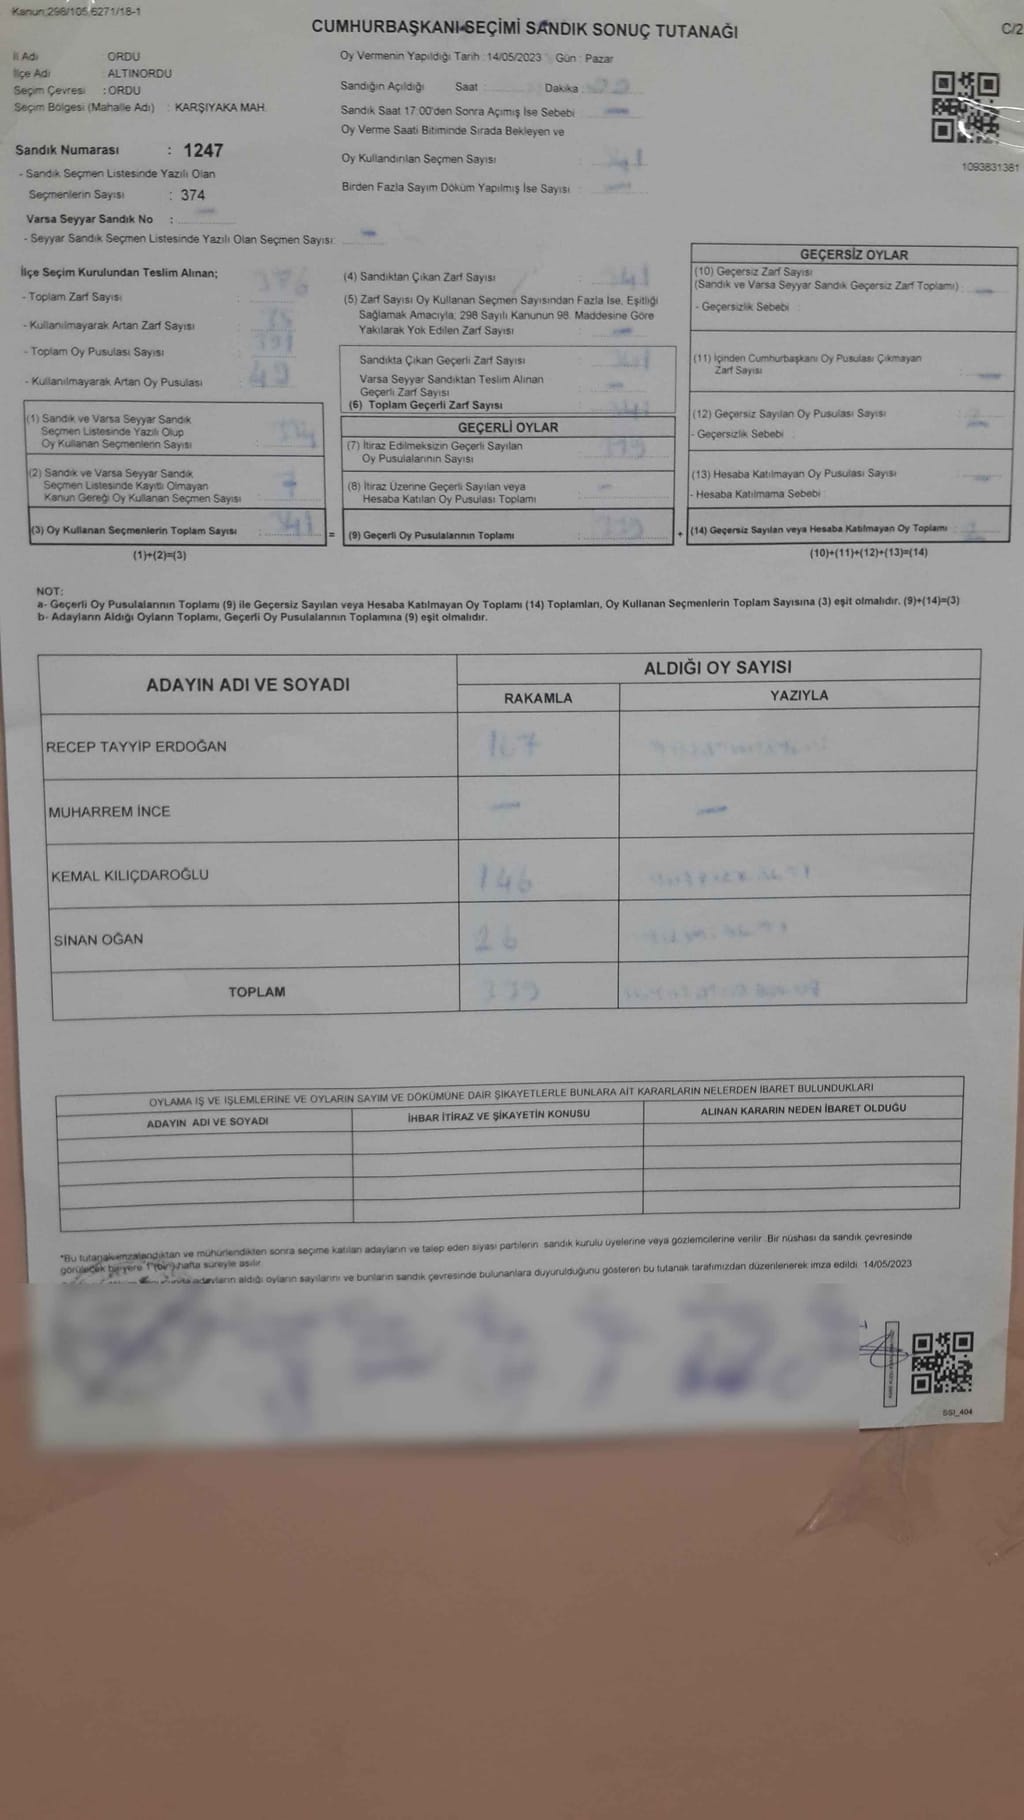 Kanun:298/105,6271/18-1
CUMHURBAŞKANI SEÇİMİ SANDIK SONUÇ TUTANAĞI
C/2
İl Adı : ORDU
İlçe Adı : ALTINORDU
Seçim Çevresi : ORDU
Seçim Bölgesi (Mahalle Adı) : KARŞIYAKA MAH.
Sandık Numarası : 1247
- Sandık Seçmen Listesinde Yazılı Olan
Seçmenlerin Sayısı : 374
Varsa Seyyar Sandık No : —
- Seyyar Sandık Seçmen Listesinde Yazılı Olan Seçmen Sayısı: —
Oy Vermenin Yapıldığı Tarih : 14/05/2023 Gün : Pazar
Sandığın Açıldığı Saat : Dakika :
Sandık Saat 17:00'den Sonra Açımış İse Sebebi : —
Oy Verme Saati Bitiminde Sırada Bekleyen ve
Oy Kullandırılan Seçmen Sayısı :
Birden Fazla Sayım Döküm Yapılmış İse Sayısı : —
1093831381
İlçe Seçim Kurulundan Teslim Alınan;
- Toplam Zarf Sayısı : 376
- Kullanılmayarak Artan Zarf Sayısı :
- Toplam Oy Pusulası Sayısı : 391
- Kullanılmayarak Artan Oy Pusulası : 49
(1) Sandık ve Varsa Seyyar Sandık
Seçmen Listesinde Yazılı Olup
Oy Kullanan Seçmenlerin Sayısı : 334
(2) Sandık ve Varsa Seyyar Sandık
Seçmen Listesinde Kayıtlı Olmayan
Kanun Gereği Oy Kullanan Seçmen Sayısı : 7
(3) Oy Kullanan Seçmenlerin Toplam Sayısı : 341
(1)+(2)=(3)
=
(4) Sandıktan Çıkan Zarf Sayısı : 341
(5) Zarf Sayısı Oy Kullanan Seçmen Sayısından Fazla İse, Eşitliği
Sağlamak Amacıyla; 298 Sayılı Kanunun 98. Maddesine Göre
Yakılarak Yok Edilen Zarf Sayısı : —
Sandıkta Çıkan Geçerli Zarf Sayısı : 341
Varsa Seyyar Sandıktan Teslim Alınan
Geçerli Zarf Sayısı : —
(6) Toplam Geçerli Zarf Sayısı : 341
GEÇERLİ OYLAR
(7) İtiraz Edilmeksizin Geçerli Sayılan
Oy Pusulalarının Sayısı : 339
(8) İtiraz Üzerine Geçerli Sayılan veya
Hesaba Katılan Oy Pusulası Toplamı : —
(9) Geçerli Oy Pusulalarının Toplamı : 339
+
GEÇERSİZ OYLAR
(10) Geçersiz Zarf Sayısı
(Sandık ve Varsa Seyyar Sandık Geçersiz Zarf Toplamı) : —
- Geçersizlik Sebebi :
(11) İçinden Cumhurbaşkanı Oy Pusulası Çıkmayan
Zarf Sayısı : —
(12) Geçersiz Sayılan Oy Pusulası Sayısı : 2
- Geçersizlik Sebebi :
(13) Hesaba Katılmayan Oy Pusulası Sayısı : —
- Hesaba Katılmama Sebebi :
(14) Geçersiz Sayılan veya Hesaba Katılmayan Oy Toplamı : 2
(10)+(11)+(12)+(13)=(14)
NOT:
a- Geçerli Oy Pusulalarının Toplamı (9) ile Geçersiz Sayılan veya Hesaba Katılmayan Oy Toplamı (14) Toplamları, Oy Kullanan Seçmenlerin Toplam Sayısına (3) eşit olmalıdır. (9)+(14)=(3)
b- Adayların Aldığı Oyların Toplamı, Geçerli Oy Pusulalarının Toplamına (9) eşit olmalıdır.
ADAYIN ADI VE SOYADI
ALDIĞI OY SAYISI
RAKAMLA YAZIYLA
RECEP TAYYİP ERDOĞAN 167
MUHARREM İNCE — —
KEMAL KILIÇDAROĞLU 146
SİNAN OĞAN 26
TOPLAM 339
OYLAMA İŞ VE İŞLEMLERİNE VE OYLARIN SAYIM VE DÖKÜMÜNE DAİR ŞİKAYETLERLE BUNLARA AİT KARARLARIN NELERDEN İBARET BULUNDUKLARI
ADAYIN ADI VE SOYADI İHBAR İTİRAZ VE ŞİKAYETİN KONUSU ALINAN KARARIN NEDEN İBARET OLDUĞU
*Bu tutanak imzalandıktan ve mühürlendikten sonra seçime katılan adayların ve talep eden siyasi partilerin sandık kurulu üyelerine veya gözlemcilerine verilir. Bir nüshası da sandık çevresinde
görülecek bir yere 1 (bir) hafta süreyle asılır.
adayların aldığı oyların sayılarını ve bunların sandık çevresinde bulunanlara duyurulduğunu gösteren bu tutanak tarafımızdan düzenlenerek imza edildi. 14/05/2023
SSI_404